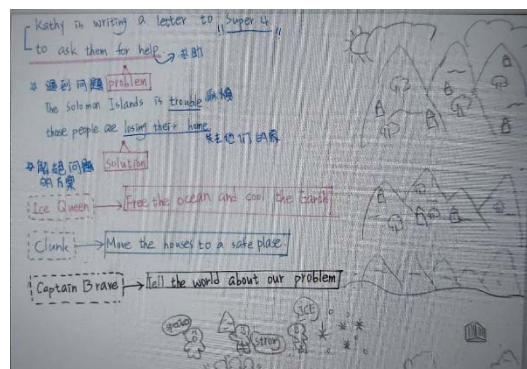 Kathy is writing a letter to "Super 4"
to ask them for help → 求助
* 遇到问题 problem
The Solomon Islands is trouble 麻烦
those people are losing their home 失去他们的家
* 解决问题的方案 solution
Ice Queen → Free the ocean and cool the Earth
Clunk → Move the houses to a safe plase
Captain Brave → Tell the world about our problem
ICE
strong